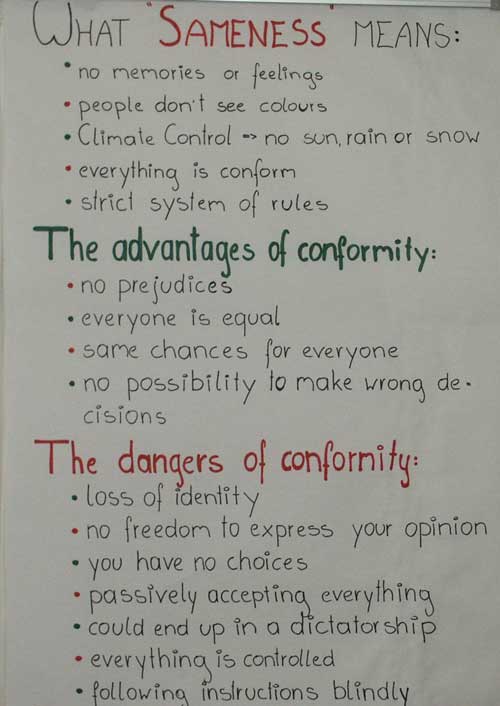 WHAT "SAMENESS" MEANS:
• no memories or feelings
• people don't see colours
• Climate Control => no sun, rain or snow
• everything is conform
• strict system of rules
The advantages of conformity:
• no prejudices
• everyone is equal
• same chances for everyone
• no possibility to make wrong de-
cisions
The dangers of conformity:
• loss of identity
• no freedom to express your opinion
• you have no choices
• passively accepting everything
• could end up in a dictatorship
• everything is controlled
• following instructions blindly